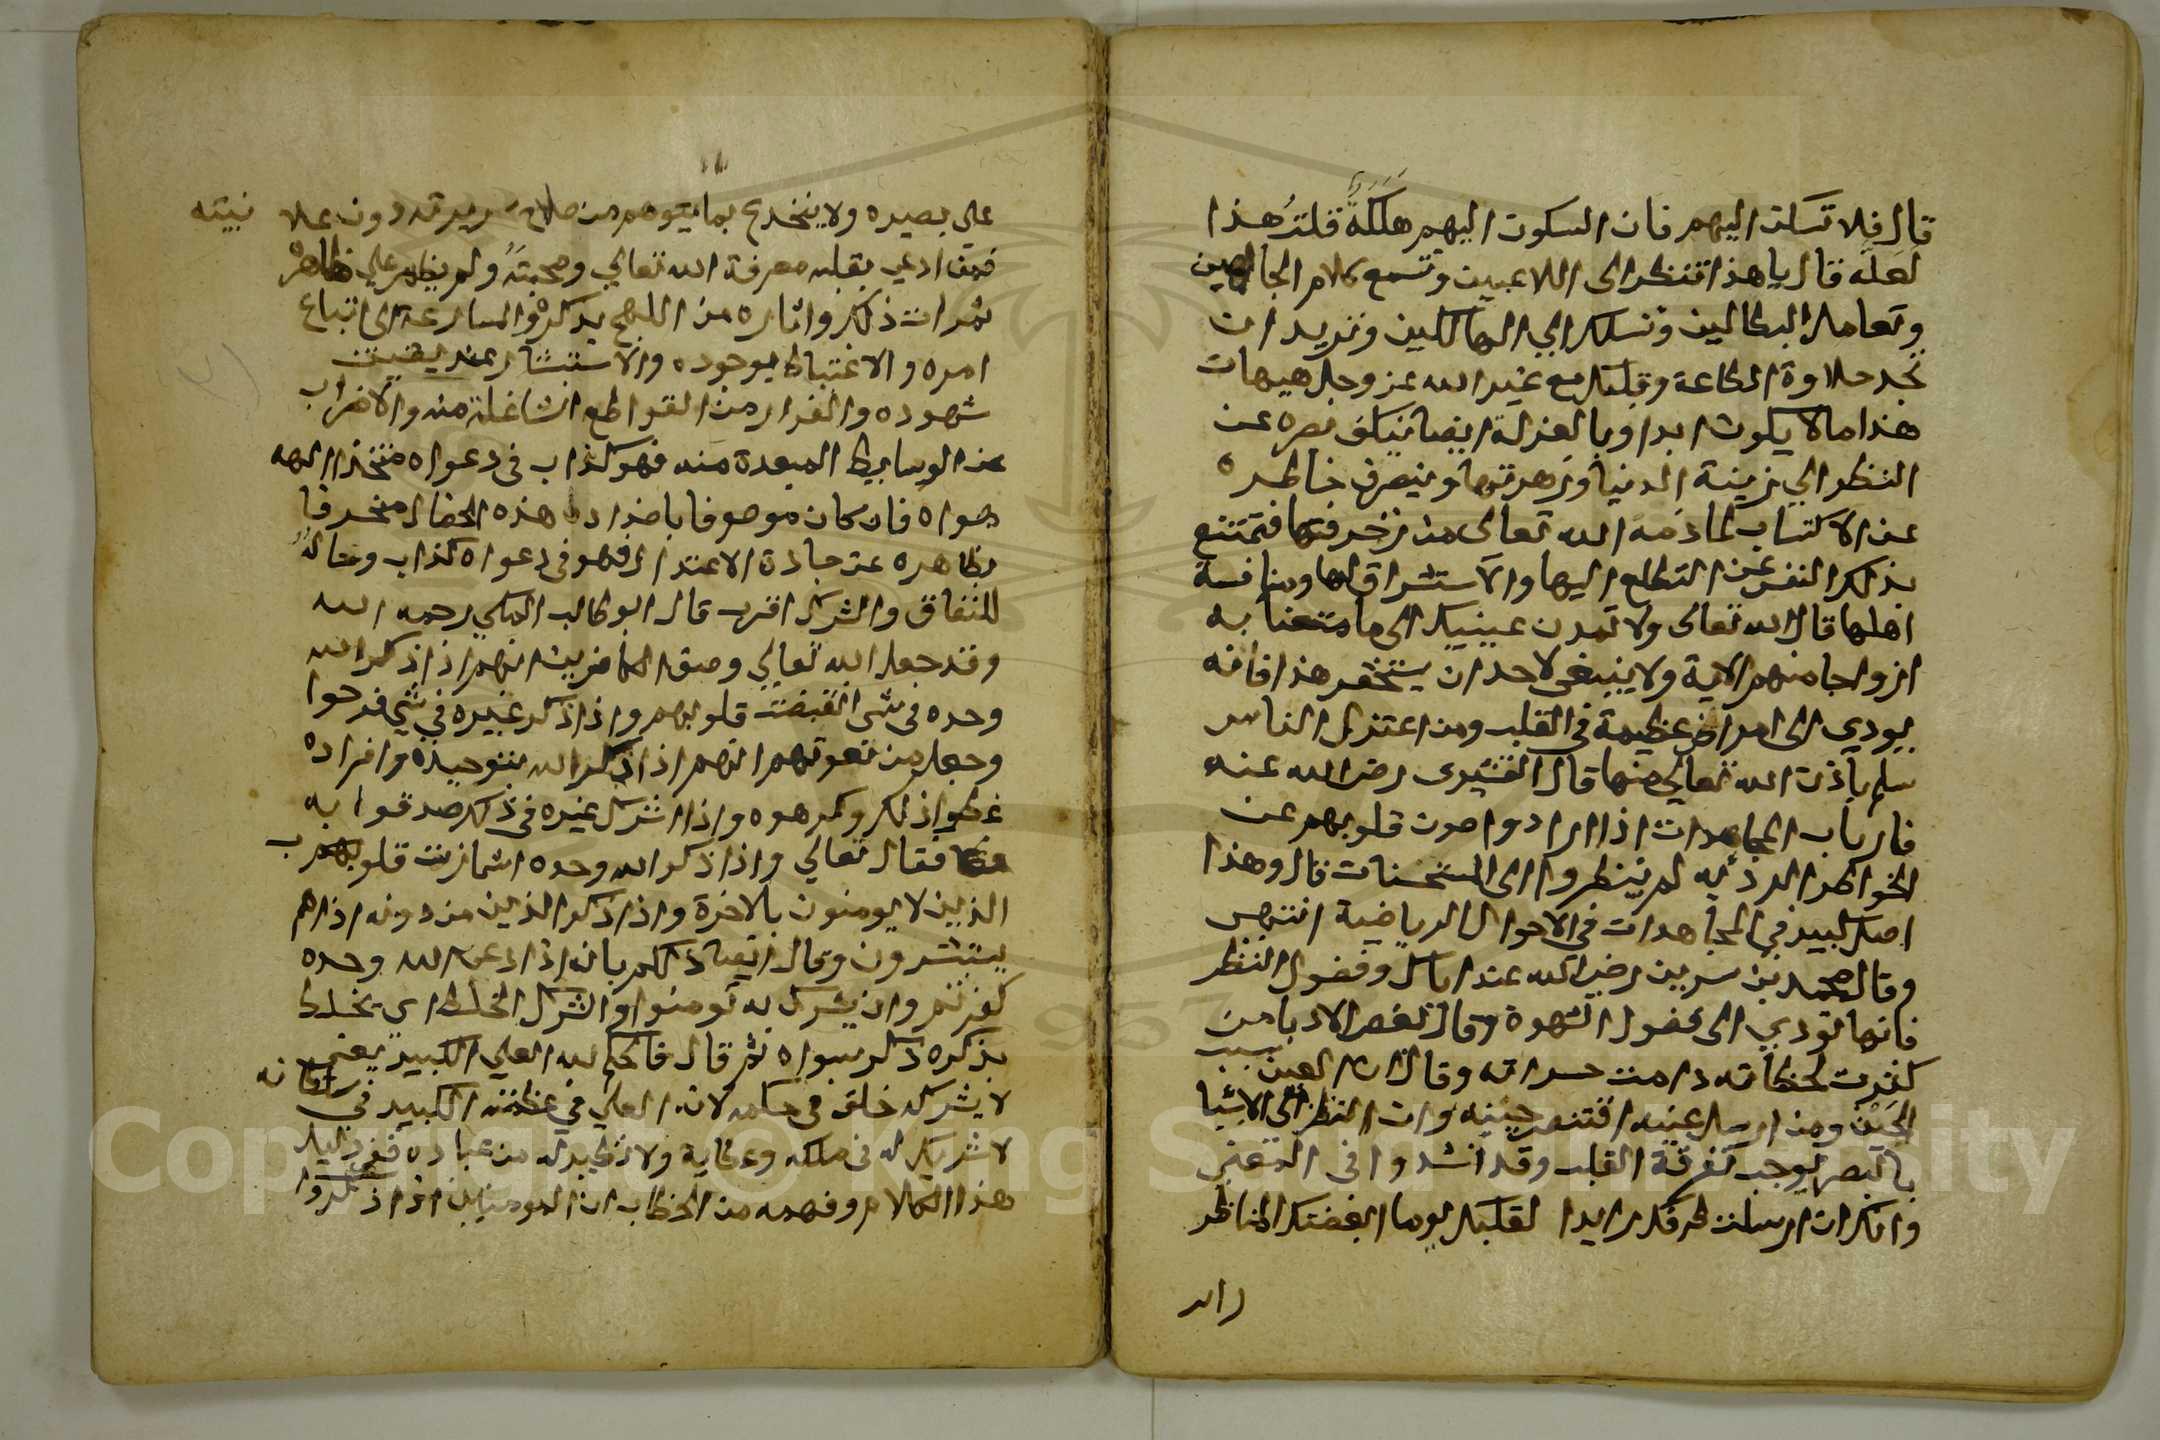 قال فلا تسكن اليهم فان السكون اليهم هلكة قلت هذا
لعله قال يا هذا تنظر الى اللاعبين وتسمع كلام الجاهلين
وتعامل البطالين وتسكن الي الهالكين وتريد ان
تجد حلاوة الطاعة وقلبك مع غير الله عز وجل هيهات
هذا ما لا يكون ابدا وبالعزلة ايضا ينكف بصره عن
النظر الي زينة الدنيا وزهرتها وينصرف خاطره
عن الاكتساب لما ذمه الله تعالى من زخرفتها فتمتنع
بذلك النفس عن التطلع اليها والاستشراق لها ومنافسة
اهلها قال الله تعالى ولا تمدن عينيك الى ما متعنا به
ازواجا منهم الاية ولا ينبغي لاحد ان يستحقر هذا فانه
يودي الى امراض عظيمة في القلب ومن اعتزل الناس
سلم باذن الله تعالي منها قال القشيرى رضي الله عنه
فارباب المجاهدات اذا ارادوا صون قلوبهم عن
الخواطر الرديه لم ينظروا الى المستحسنات قال وهذا
اصل كبير في المجاهدات في الاحوال الرياضية انتهى
وقال محمد بن سيرين رضي الله عنه اياك وفضول النظر
فانها تودي الى فضول الشهوة وقال بعض الادبا من
كثرت لحظاته دامت حسراته وقال ان العين سبب
الحين ومن ارسل عينه اقتنص حينه وان النظر الى الاشيا
بالبصر يوجب تفرقة القلب وقد انشدوا في المعنى
وانك ان ارسلت طرفك رايدا لقلبك يوما اتعبتك المناظر
راىت
على بصيره ولا ينخدع بما يتوهم من صلاح سريرته دون علا نيته
فمن ادعي بقلبه معرفة الله تعالي ومحبته ولم يظهر علي ظاهره
ثمرات ذلك واثاره من اللهج بذكره والمسارعة الى اتباع
امره والاغتباط بوجوده والاستبشار عند يقين
شهوده والفرار من القواطع الشاغلة منه والاضراب
عن الوسايط المبعدة منه فهو كذاب في دعواه متخذ الهه
هواه فان كان موصوفا باضداد هذه الخصال منحرفا
بظاهره عن جادة الاعتدال فهو في دعواه كذاب وحاله
للنفاق والشرك اقرب قال ابو طالب المكي رحمه الله
وقد جعل الله تعالي وصف الكافرين انهم اذا ذكر الله
وحده في شي انقبضت قلوبهم واذا ذكر غيره في شي فرحوا
وجعل من نعوتهم انهم اذا ذكر الله بتوحيده وافراده
غطوا ذلك وكرهوه واذا اشرك غيره في ذلك صدقوا به
فقال تعالي واذا ذكر الله وحده اشمازت قلوب
الذين لا يومنون بالاخرة واذا ذكر الذين من دونه اذا هم
يستبشرون وقال ايضا ذلكم بانه اذا دعى الله وحده
كفرتم وان يشرك به تومنوا والشرك الخلط اى يخلط
بذكره ذكر سواه ثم قال فالحكم لله العلي الكبير يعنى
لا يشركه خلق في حكمه لانه العلي في عظمته الكبير في سلطانه
لا شريك له في ملكه وعطايه ولا نظير له من عباده ففي دليل
هذا الكلام وفهمه من الخطاب ان المومنين اذا ذكروا